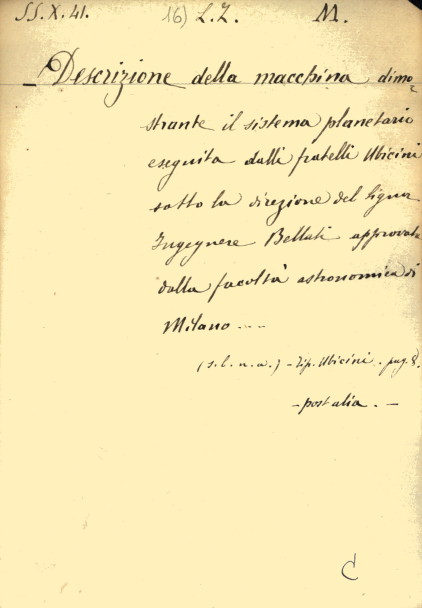 SS.X.41. 16) L.Z. M.
— Descrizione della macchina dimo-
strante il sistema planetario
eseguita dalli fratelli Ubicini
sotto la direzione del Signor
Ingegnere Bellati approvata
dalla facoltà astronomica di
Milano ---
(s.l.n.a.) - Tip. Ubicini. pag. 8.
- post alia. -
C